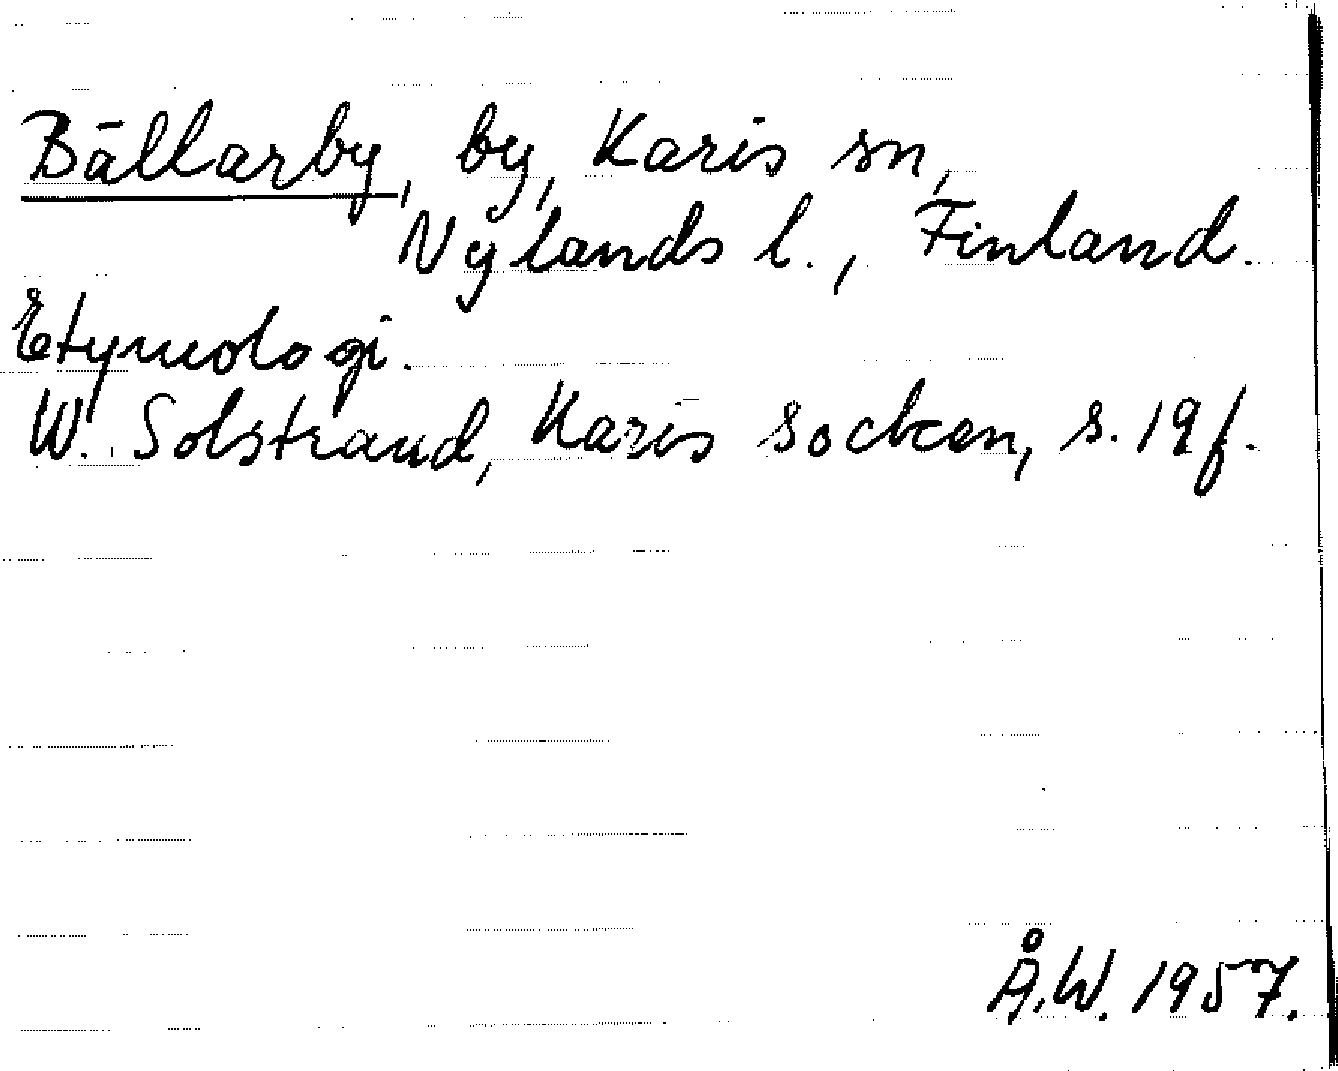 Bällarby, by, Karis sn,
Nylands l., Finland.
Etymologi.
W. Solstrand, Karis socken, s. 19 f.
Å.W. 1957.